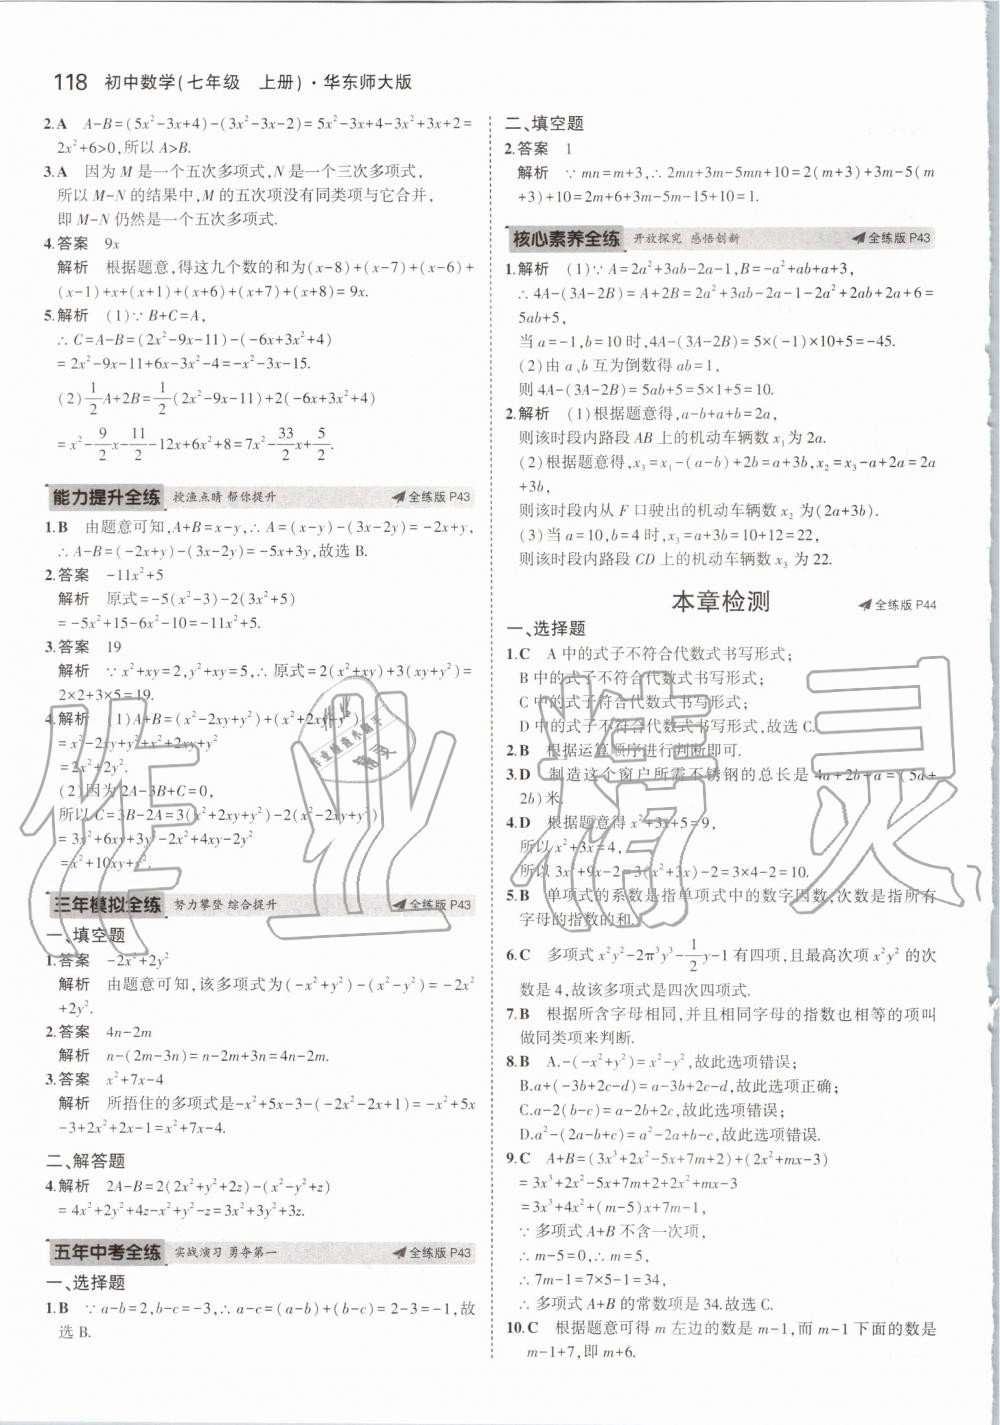 118 初中数学(七年级 上册)·华东师大版
2.A A-B=(5x²-3x+4)-(3x²-3x-2)=5x²-3x+4-3x²+3x+2=
2x²+6>0,所以 A>B.
3.A 因为 M 是一个五次多项式,N 是一个三次多项式,
所以 M-N 的结果中,M 的五次项没有同类项与它合并,
即 M-N 仍然是一个五次多项式.
4.答案 9x
解析 根据题意,得这九个数的和为(x-8)+(x-7)+(x-6)+
(x-1)+x+(x+1)+(x+6)+(x+7)+(x+8)=9x.
5.解析 (1)∵B+C=A,
∴C=A-B=(2x²-9x-11)-(-6x+3x²+4)
=2x²-9x-11+6x-3x²-4=-x²-3x-15.
(2)1/2A+2B=1/2(2x²-9x-11)+2(-6x+3x²+4)
=x²-9/2x-11/2-12x+6x²+8=7x²-33/2x+5/2.
能力提升全练 授渔点睛 帮你提升 全练版 P43
1.B 由题意可知,A+B=x-y,∴A=(x-y)-(3x-2y)=-2x+y,
∴A-B=(-2x+y)-(3x-2y)=-5x+3y,故选 B.
2.答案 -11x²+5
解析 原式=-5(x²-3)-2(3x²+5)
=-5x²+15-6x²-10=-11x²+5.
3.答案 19
解析 ∵x²+xy=2,y²+xy=5,∴原式=2(x²+xy)+3(xy+y²)=
2×2+3×5=19.
4.解析 (1)A+B=(x²-2xy+y²)+(x²+2xy+y²)
=x²-2xy+y²+x²+2xy+y²
=2x²+2y².
(2)因为 2A-3B+C=0,
所以 C=3B-2A=3(x²+2xy+y²)-2(x²-2xy+y²)
=3x²+6xy+3y²-2x²+4xy-2y²
=x²+10xy+y².
三年模拟全练 努力攀登 综合提升 全练版 P43
一、填空题
1.答案 -2x²+2y²
解析 由题意可知,该多项式为(-x²+y²)-(x²-y²)=-2x²
+2y².
2.答案 4n-2m
解析 n-(2m-3n)=n-2m+3n=4n-2m.
3.答案 x²+7x-4
解析 所捂住的多项式是-x²+5x-3-(-2x²-2x+1)=-x²+5x
-3+2x²+2x-1=x²+7x-4.
二、解答题
4.解析 2A-B=2(2x²+y²+2z)-(x²-y²+z)
=4x²+2y²+4z-x²+y²-z=3x²+3y²+3z.
五年中考全练 实战演习 勇夺第一 全练版 P43
一、选择题
1.B ∵a-b=2,b-c=-3,∴a-c=(a-b)+(b-c)=2-3=-1,故
选 B.
二、填空题
2.答案 1
解析 ∵mn=m+3,∴2mn+3m-5mn+10=2(m+3)+3m-5(m
+3)+10=2m+6+3m-5m-15+10=1.
核心素养全练 开放探究 感悟创新 全练版 P43
1.解析 (1)∵A=2a²+3ab-2a-1,B=-a²+ab+a+3,
∴4A-(3A-2B)=A+2B=2a²+3ab-2a-1-2a²+2ab+2a+6=
5ab+5,
当 a=-1,b=10 时,4A-(3A-2B)=5×(-1)×10+5=-45.
(2)由 a、b 互为倒数得 ab=1,
则 4A-(3A-2B)=5ab+5=5×1+5=10.
2.解析 (1)根据题意得,a-b+a+b=2a,
则该时段内路段 AB 上的机动车辆数 x₁ 为 2a.
(2)根据题意得,x₃=x₁-(a-b)+2b=a+3b,x₂=x₃-a+2a=2a
+3b,
则该时段内从 F 口驶出的机动车辆数 x₂ 为(2a+3b).
(3)当 a=10,b=4 时,x₃=a+3b=10+12=22,
则该时段内路段 CD 上的机动车辆数 x₃ 为 22.
本章检测 全练版 P44
一、选择题
1.C A 中的式子不符合代数式书写形式;
B 中的式子不符合代数式书写形式;
C 中的式子符合代数式书写形式;
D 中的式子不符合代数式书写形式,故选 C.
2.B 根据运算顺序进行判断即可.
3.D 制造这个窗户所需不锈钢的总长是 4a+2b+a=(5a+
2b)米.
4.D 根据题意得 x²+3x+5=9,
所以 x²+3x=4,
所以 3x²+9x-2=3(x²+3x)-2=3×4-2=10.
5.B 单项式的系数是指单项式中的数字因数,次数是指所有
字母的指数的和.
6.C 多项式 x²y²-2π³y³-1/2y-1 有四项,且最高次项 x²y² 的次
数是 4,故该多项式是四次四项式.
7.B 根据所含字母相同,并且相同字母的指数也相等的项叫
做同类项来判断.
8.B A.-(-x²+y²)=x²-y²,故此选项错误;
B.a+(-3b+2c-d)=a-3b+2c-d,故此选项正确;
C.a-2(b-c)=a-2b+2c,故此选项错误;
D.a²-(2a-b+c)=a²-2a+b-c,故此选项错误.
9.C A+B=(3x³+2x²-5x+7m+2)+(2x²+mx-3)
=3x³+2x²-5x+7m+2+2x²+mx-3
=3x³+4x²+(m-5)x+7m-1,
∵多项式 A+B 不含一次项,
∴m-5=0,∴m=5,
∴7m-1=7×5-1=34,
∴多项式 A+B 的常数项是 34.故选 C.
10.C 根据题意可得 m 左边的数是 m-1,而 m-1 下面的数是
m-1+7,即 m+6.
作业精灵
作业检查小帮手
精灵